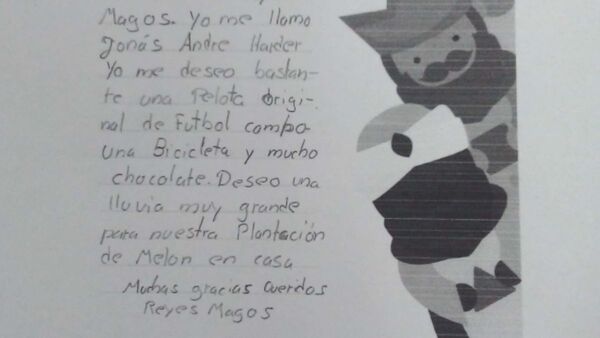 Magos. Yo me llamo
Jonás Andre Harder
Yo me deseo bastan-
te una Pelota Origi-
nal de Futbol campo
una Bicicleta y mucho
chocolate. Deseo una
lluvia muy grande
para nuestra Plantación
de Melon en casa
Muchas gracias Queridos
Reyes Magos